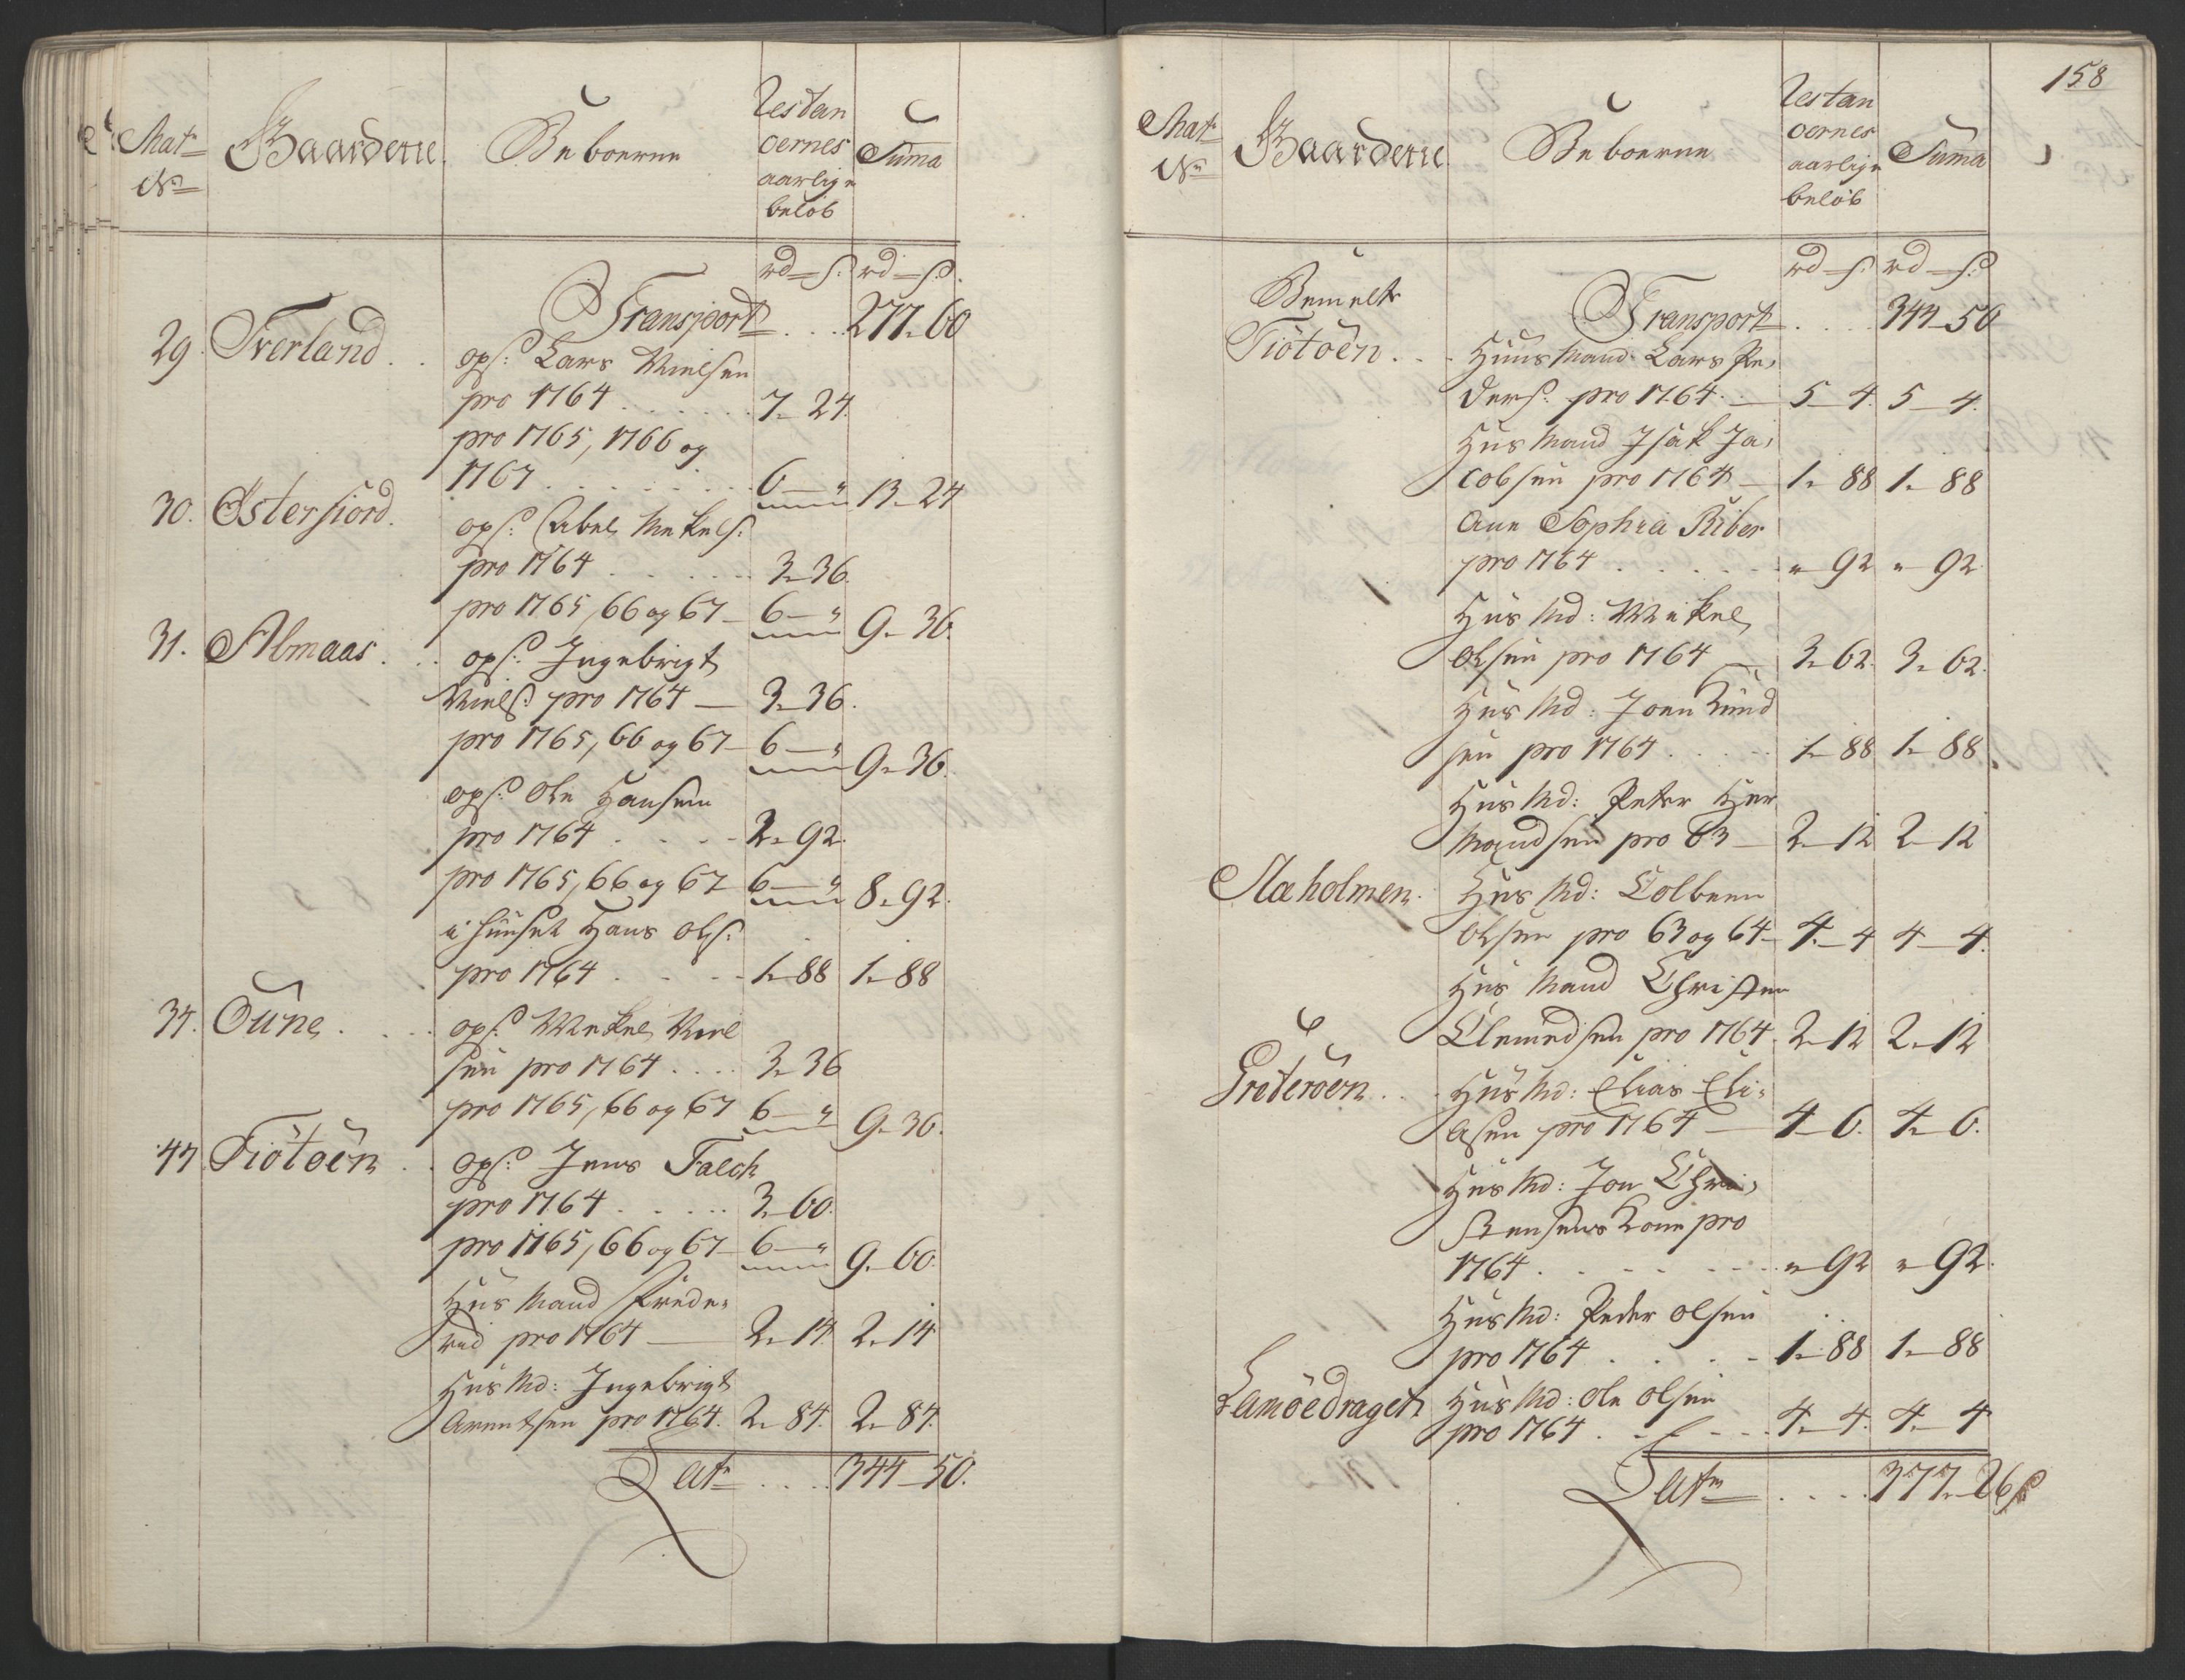 Mat:
No
Gaardene
Beboerne
Restan
cernes
aarlige
beløb
Suma
rd — s: rd — s:
Transport . . . 277 - 60
29. Tverland . . ops: Lars Nielsen
pro 1764 . . . . . . 7 - 24.
pro 1765, 1766 og
1767 . . . . . . . . 6 - " 13 - 24
30. Østerfiord. ops: Abel Mekels:
pro 1764 . . . . . . 3 - 36.
pro 1765, 66 og 67 - 6 - " 9 - 36.
31. Almaas . . . ops: Ingebrigt
Niels: pro 1764 — 3 - 36.
pro 1765, 66 og 67 - 6 - " 9 - 36.
ops: Ole Hansen
pro 1764 . . . . - 2 - 92.
pro 1765, 66 og 67 6 - " 8 - 92.
i huuset Hans Ols:
pro 1764 . . . . - 1 - 88 1 - 88
34. Oune . . . . ops: Mekel Niel
sen pro 1764 . . . . 3 - 36
pro 1765, 66 og 67 6 - " 9 - 36.
44 Tiötöen . . ops: Jens Falch
pro 1764 . . . . . 3 - 60.
pro 1765, 66 og 67 - 6 - " 9 - 60.
Huus Mand Frede-
rid pro 1764 — 2 - 14. 2 - 14
Huus Md: Ingebrigt
Arentsen pro 1764. 2 - 84. 2 - 84.
Lat: . . . . 344 - 50.
158
Mat:
No
Gaardene
Beboerne
Restan
cernes
aarlige
beløb
Suma
rd — s: rd — s:
Bemelte
Transport . . . . 344 - 50
Tiötöen . . . Huus Mand Lars Pe,
ders: pro 1764. — 5 - 4. 5 - 4.
Huus Mand Isak Ja,
cobsen pro 1764 — 1 - 88 1 - 88
Ane Sophia Riber
pro 1764 . . . . . - " 92 " 92
Huus Md: Mekel
Olsen pro 1764 — 3 - 62. 3 - 62.
Huus Md: Joen Knud
sen pro 1764 . . . . . 1 - 88 1 - 88.
Huus Md: Peter Her
mandsen pro 63 — 2 - 12 2 - 12
Huus Md: Colbeen
Olsen pro 63 og 64 - 4 - 4 4 - 4.
Huus Mand Christen
Clemedsen pro 1764. 2 - 12 2 - 12
Huus Md: Elias Eli-
asen pro 1764 — 4 - 6. 4 - 6.
Huus Md: Jon Chri,
stensens Kone pro
1764 . . . . . . . . " 92 " 92.
Huus Md: Peder Olsen
pro 1764 . . . . - 1 - 88 1 - 88
Huus Md: Ole Olsen
pro 1764 . . . . . 4 - 4. 4 - 4
Lat: . . . . 377 - 26 s